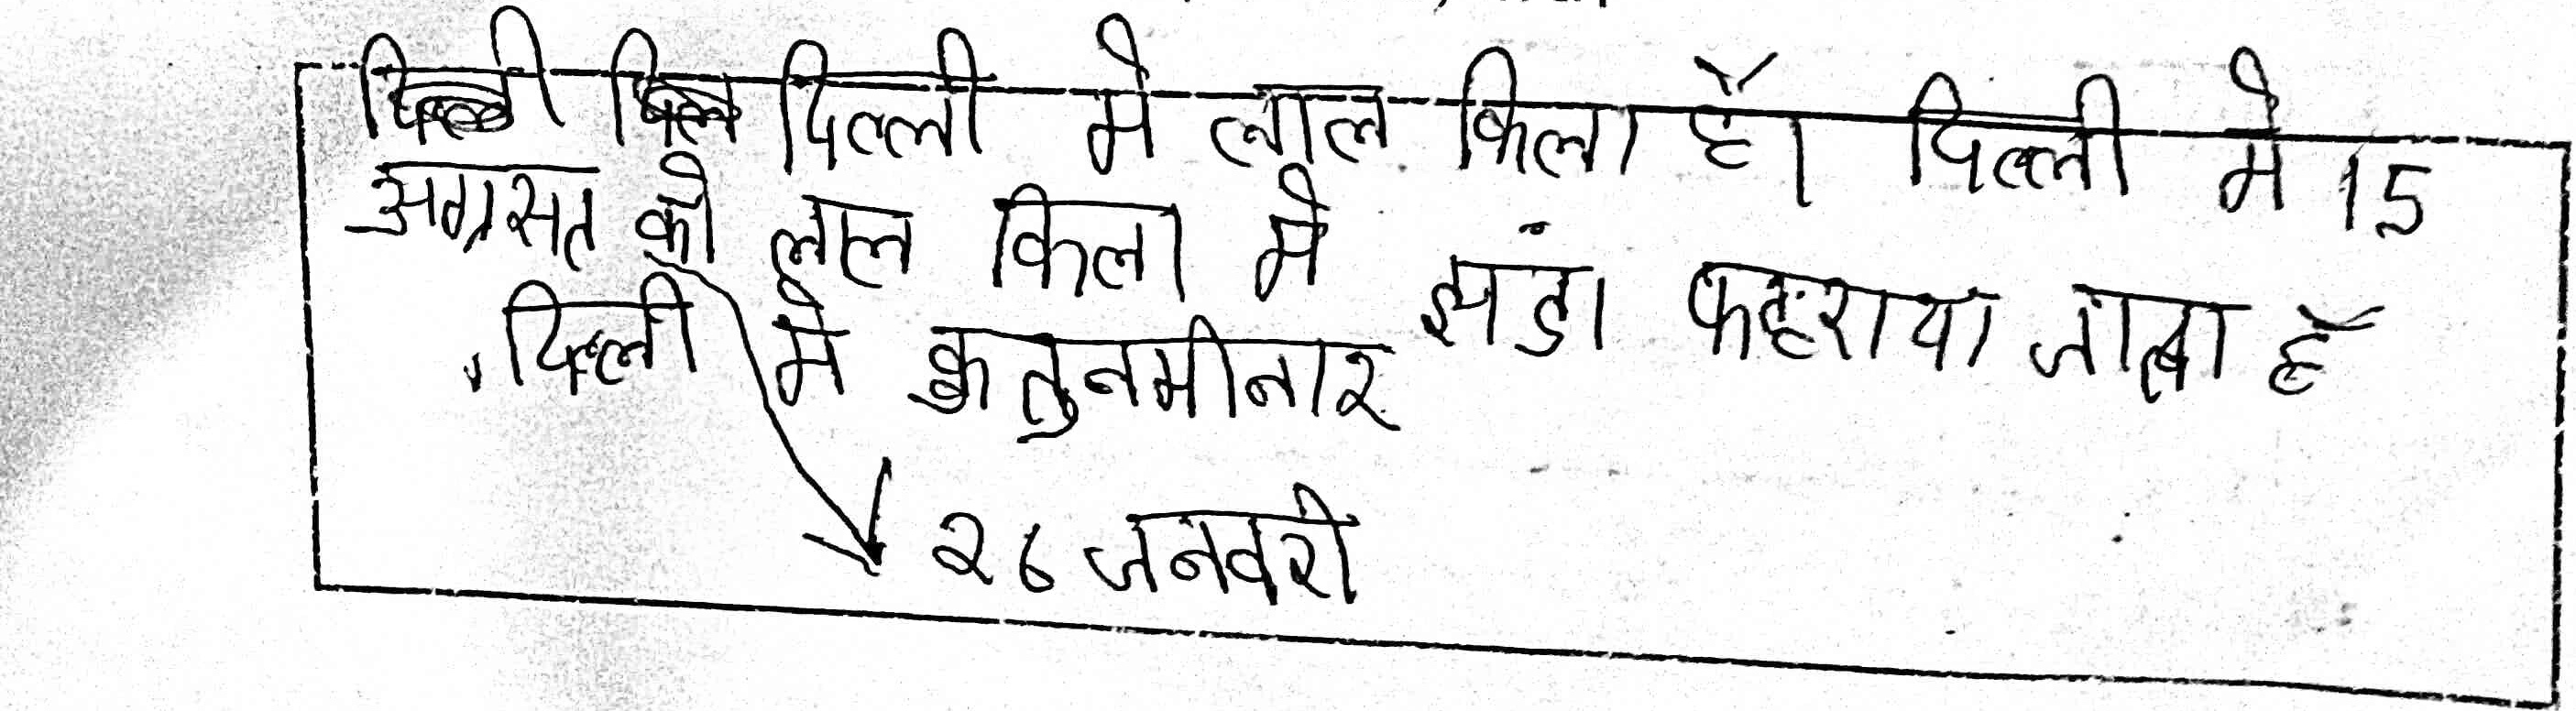 दिल्ली मे लाल किला हैं। दिल्ली मे 15
अग्रसत को लाल किला मे झंडा फहराया जाता हैं
दिल्ली मे कुतुनमीनार
२६ जनवरी